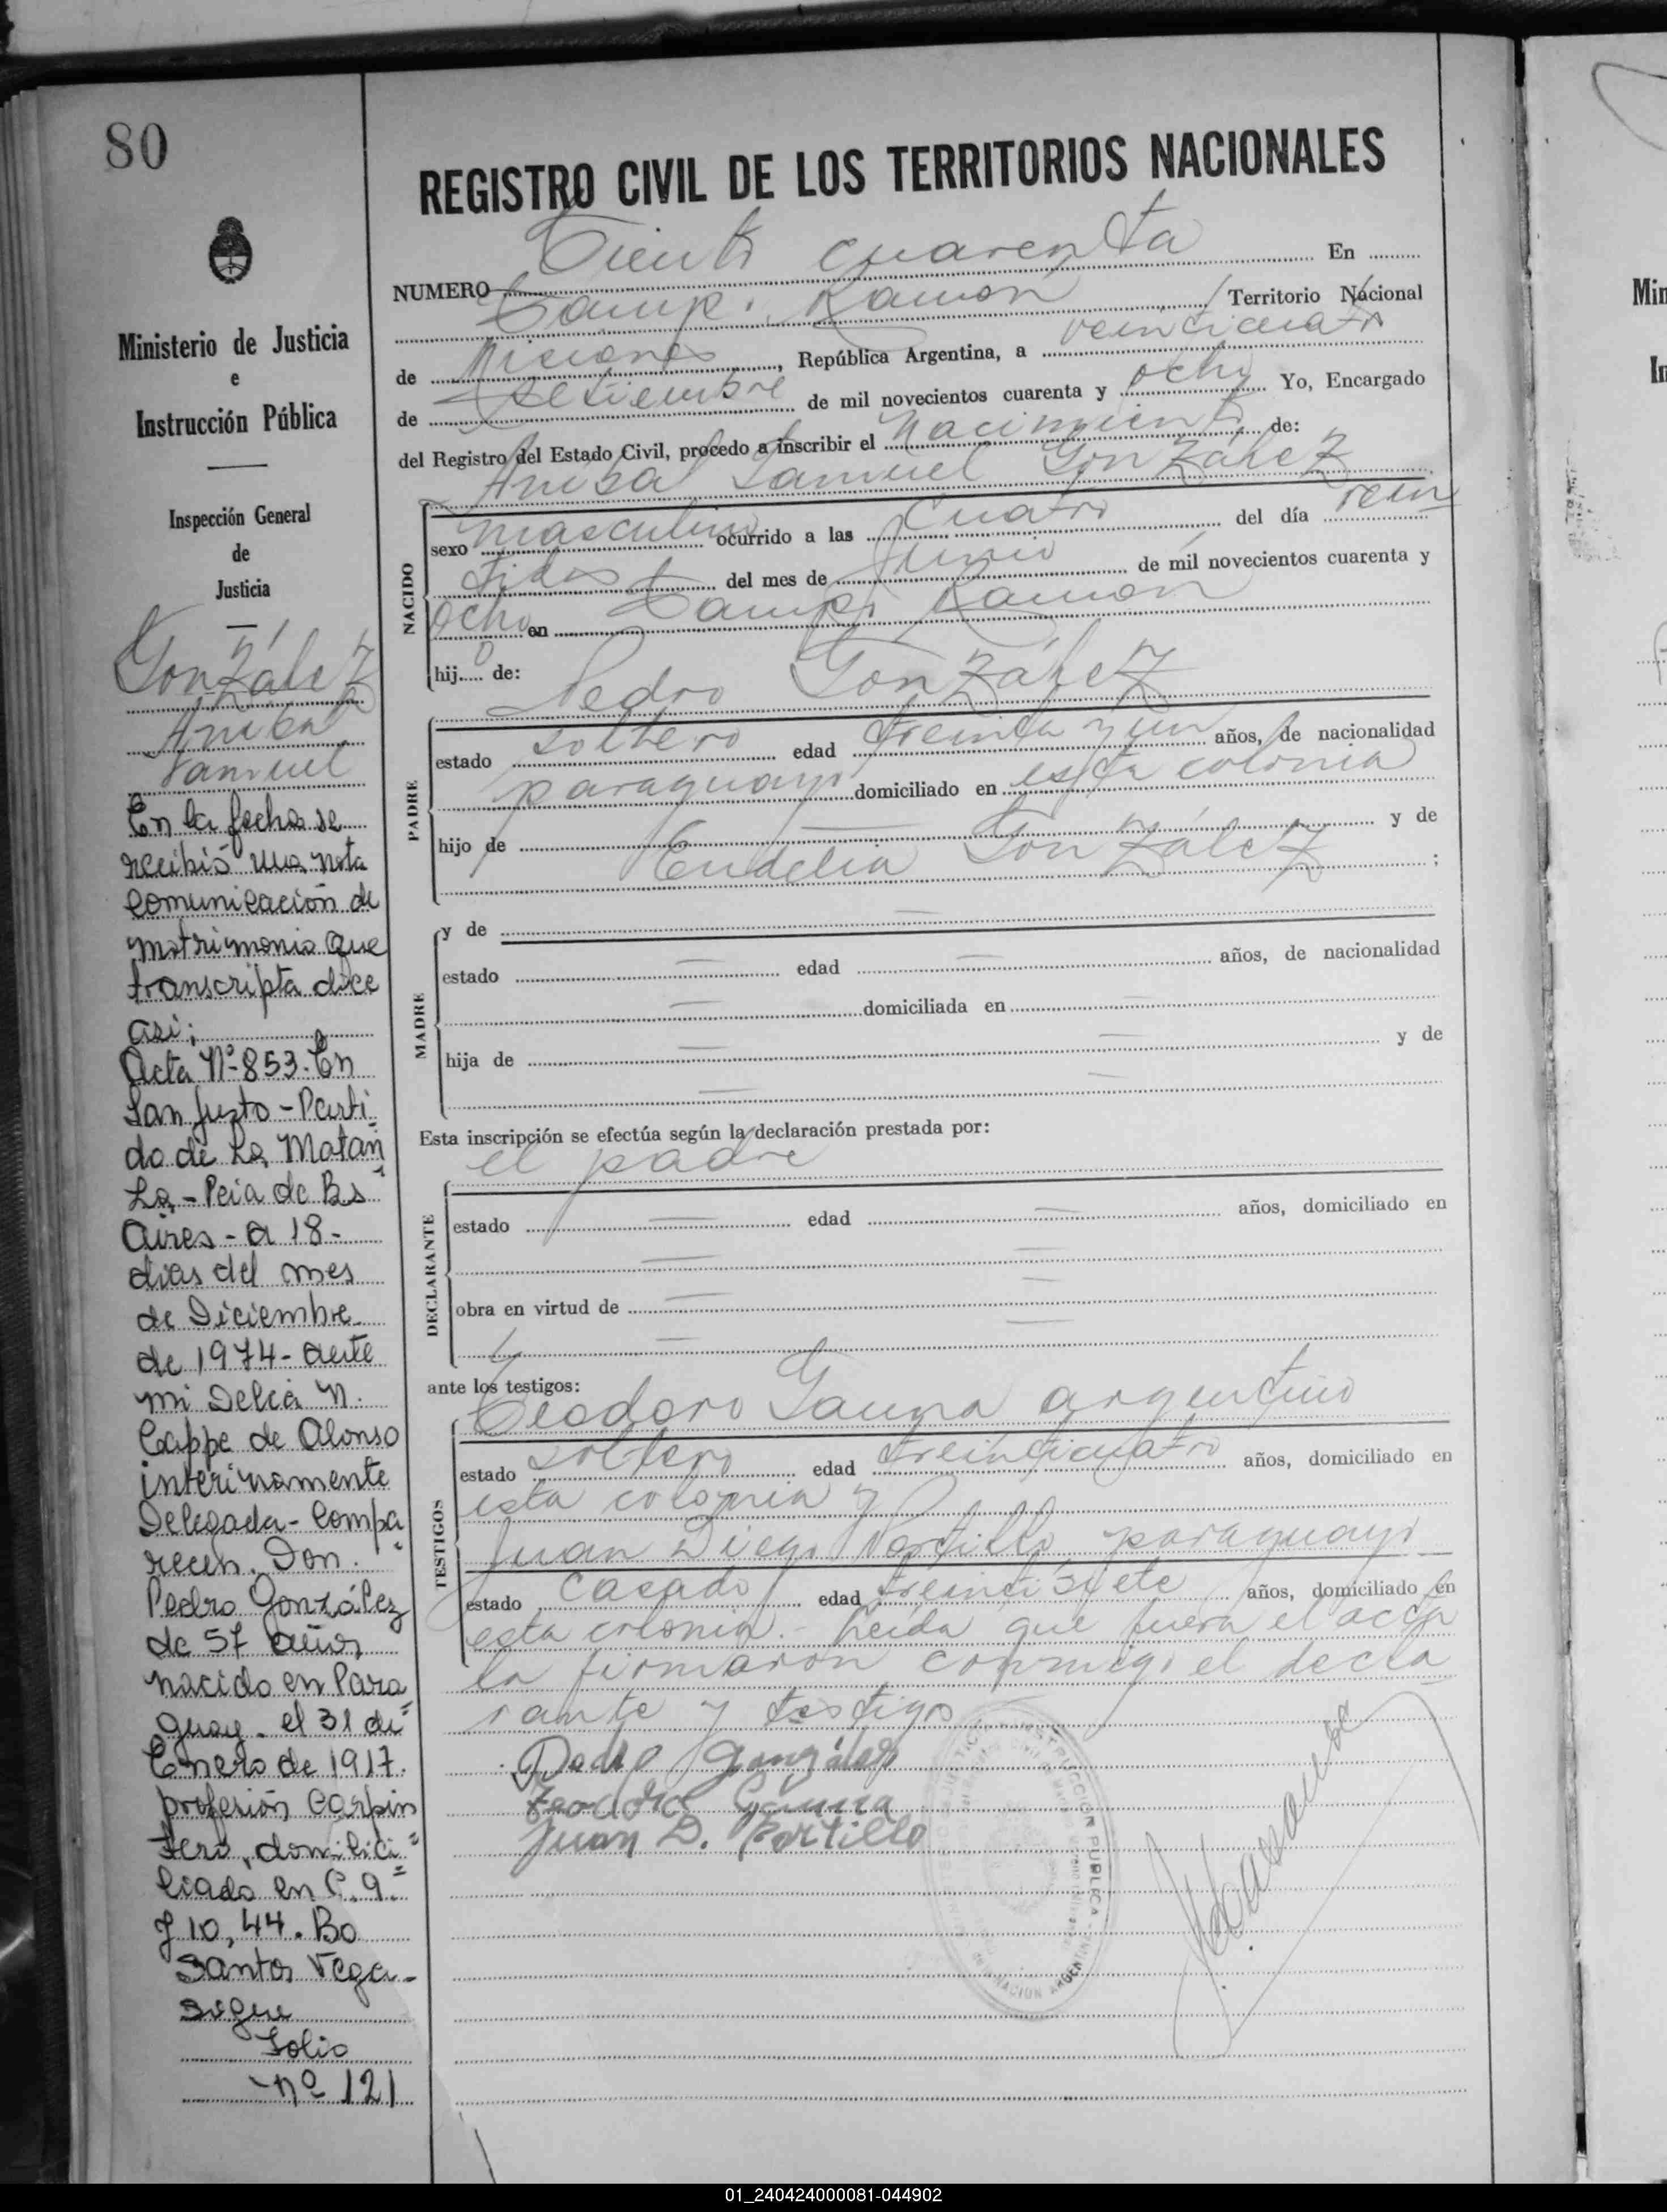 80
Ministerio de Justicia
e
Instrucción Pública
Inspección General
de
Justicia
González
Anibal
Samuel
En la fecha se
recibió una nota
comunicación de
matrimonio que
transcripta dice
asi;
Acta Nº 853. En
San Justo - Parti
do de La Matan
za - Pcia de Bs
Aires - a 18 -
dias del mes
de Diciembre
de 1974 - ante
mi Delia N.
Cappe de Alonso
interinamente
Delegada - Compa
recen. Don.
Pedro González
de 57 años
nacido en Para
guay. el 31 de
Enero de 1917.
profesión Carpin
tero, domici
liado en C. 9.
y 10, 44. Bo
Santos Vega -
Sigue
Folio
nº 121
REGISTRO CIVIL DE LOS TERRITORIOS NACIONALES
NUMERO Ciento cuarenta En
Campo Ramón Territorio Nacional
de Misiones, República Argentina, a veinticuatro
de Setiembre de mil novecientos cuarenta y ocho Yo, Encargado
del Registro del Estado Civil, procedo a inscribir el Nacimiento de:
Anibal Samuel González
NACIDO
sexo masculino ocurrido a las cuatro del día vein
tidos del mes de Junio de mil novecientos cuarenta y
ocho en Campo Ramon
hijo de:
Pedro González
PADRE
estado soltero edad treinta y un años, de nacionalidad
paraguayo domiciliado en esta colonia
hijo de — y de
Eudelia González ;
MADRE
y de —
estado — edad — años, de nacionalidad
— domiciliada en —
hija de — — y de
— —
Esta inscripción se efectúa según la declaración prestada por:
el padre
DECLARANTE
estado — edad — años, domiciliado en
— —
obra en virtud de — —
— —
ante los testigos:
TESTIGOS
Teodoro Gauna argentino
estado soltero edad treinticuatro años, domiciliado en
esta colonia y
Juan Diego Portillo paraguayo
estado casado edad treintisiete años, domiciliado en
esta colonia. - Leída que fuera el acta
la firmaron conmigo el decla
rante y testigos
Pedro González
Teodoro Gauna
Juan D. Portillo
INSTRUCCION PUBLICA
NACION ARGENTINA
01_240424000081-044902
Min
In